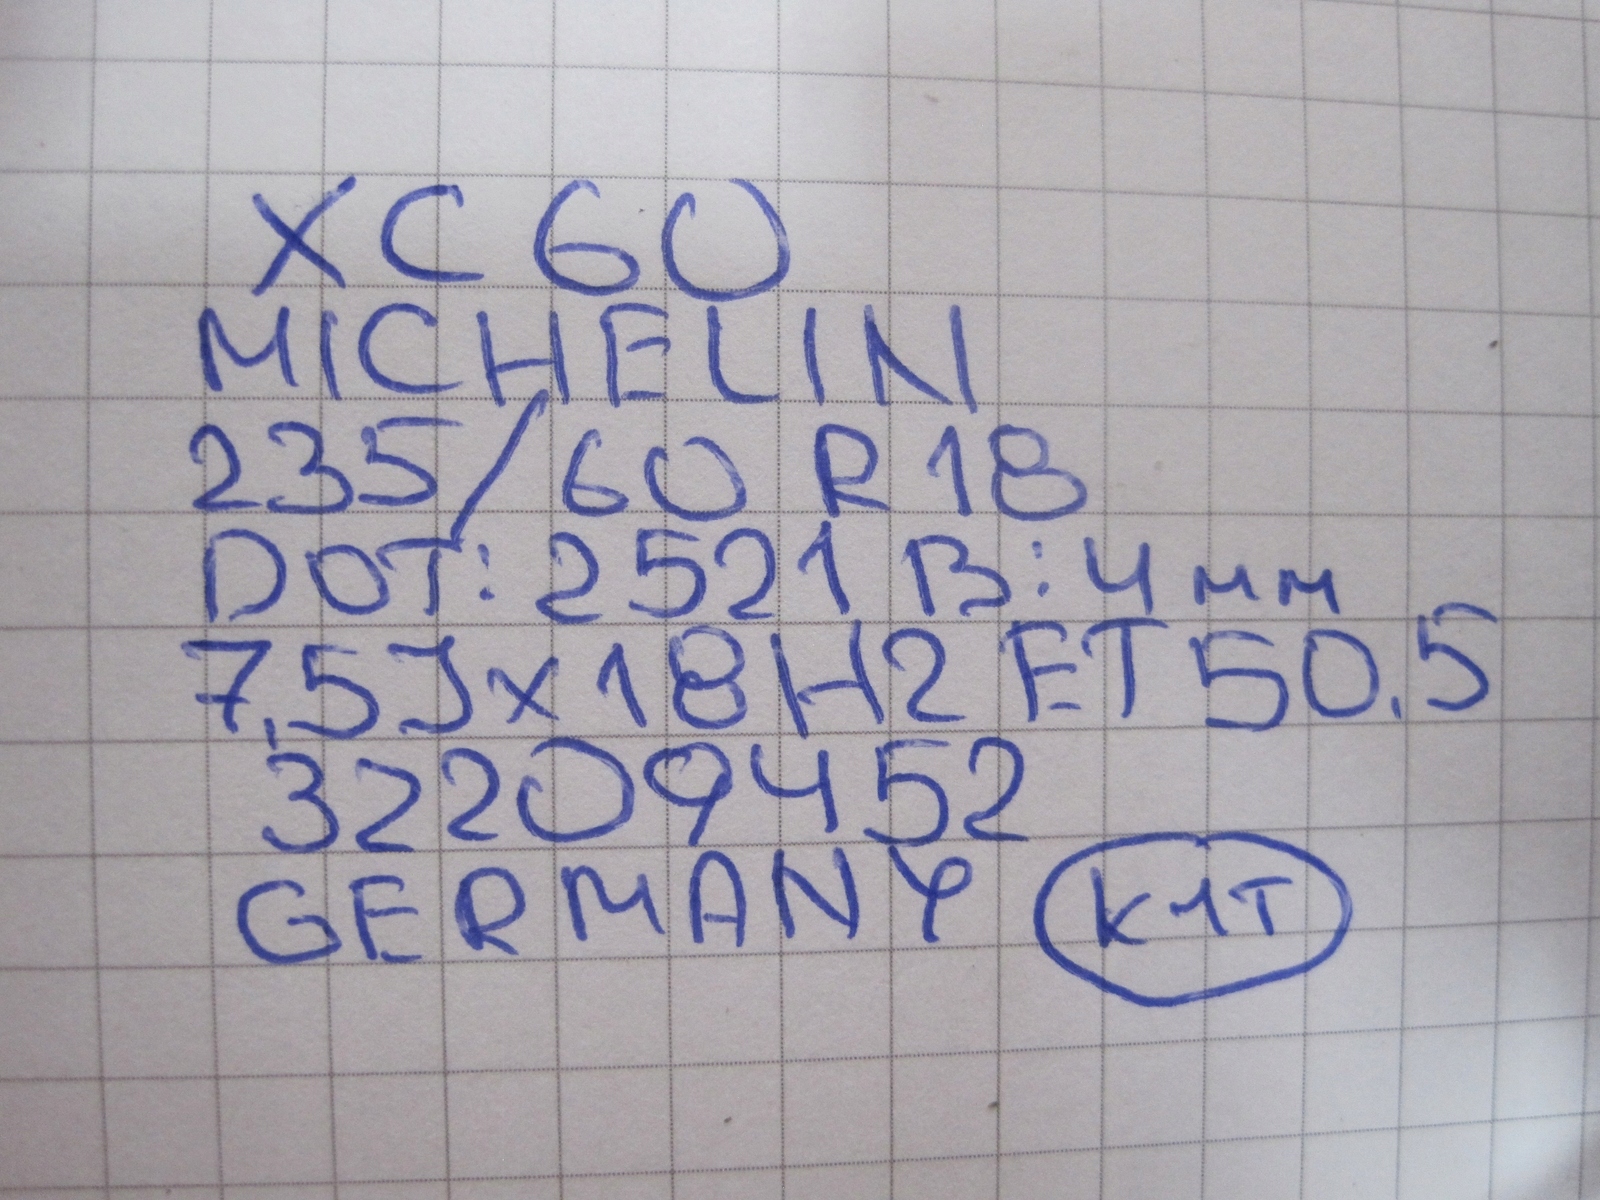 XC 60
MICHELIN
235/60 R 18
DOT: 2521 B: 4 мм
7,5J x 18 H2 ET 50,5
32209452
GERMANY K1T